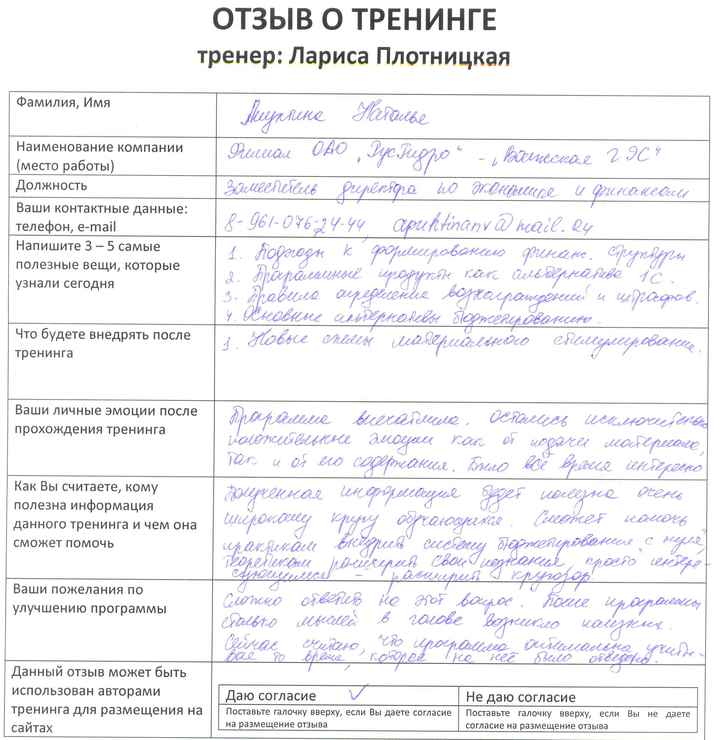 ОТЗЫВ О ТРЕНИНГЕ
тренер: Лариса Плотницкая
Фамилия, Имя
Наталья
Наименование компании
(место работы)
Филиал ОАО „РусГидро“ - „Волжская ГЭС“
Должность
Заместитель директора по экономике и финансам
Ваши контактные данные:
телефон, e-mail
8-961-076-24-44,
Напишите 3 – 5 самые
полезные вещи, которые
узнали сегодня
1. Подходы к формированию финанс. структуры
2. Программные продукты как альтернатива 1С.
3. Правила определения вознаграждений и штрафов.
4. Основные альтернативы бюджетированию.
Что будете внедрять после
тренинга
1. Новые схемы материального стимулирования.
Ваши личные эмоции после
прохождения тренинга
Программа впечатлила. Остались исключительно
положительные эмоции как от подачи материала,
так и от его содержания. Было всё время интересно
Как Вы считаете, кому
полезна информация
данного тренинга и чем она
сможет помочь
Полученная информация будет полезна очень
широкому кругу обучающихся. Сможет помочь
практикам внедрить систему бюджетирования с нуля,
теоретикам расширить свои познания, просто интере-
сующимся - расширить кругозор
Ваши пожелания по
улучшению программы
Сложно ответить на этот вопрос. После программы
столько мыслей в голове возникло
Сейчас считаю, что программа оптимальна учиты-
вая то время, которое на неё было отведено.
Данный отзыв может быть
использован авторами
тренинга для размещения на
сайтах
Даю согласие ✓
Не даю согласие
Поставьте галочку вверху, если Вы даете согласие
на размещение отзыва
Поставьте галочку вверху, если Вы не даете
согласие на размещение отзыва